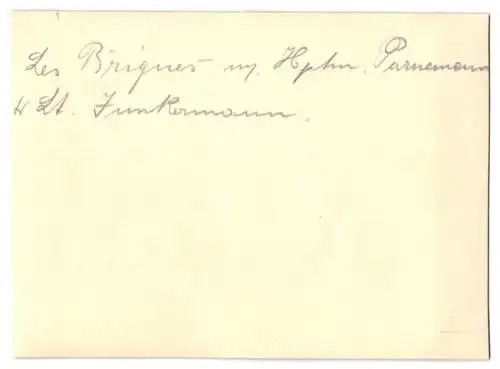 Les Brignes m. Hptm. Parnemann
u Lt. Junkermann.